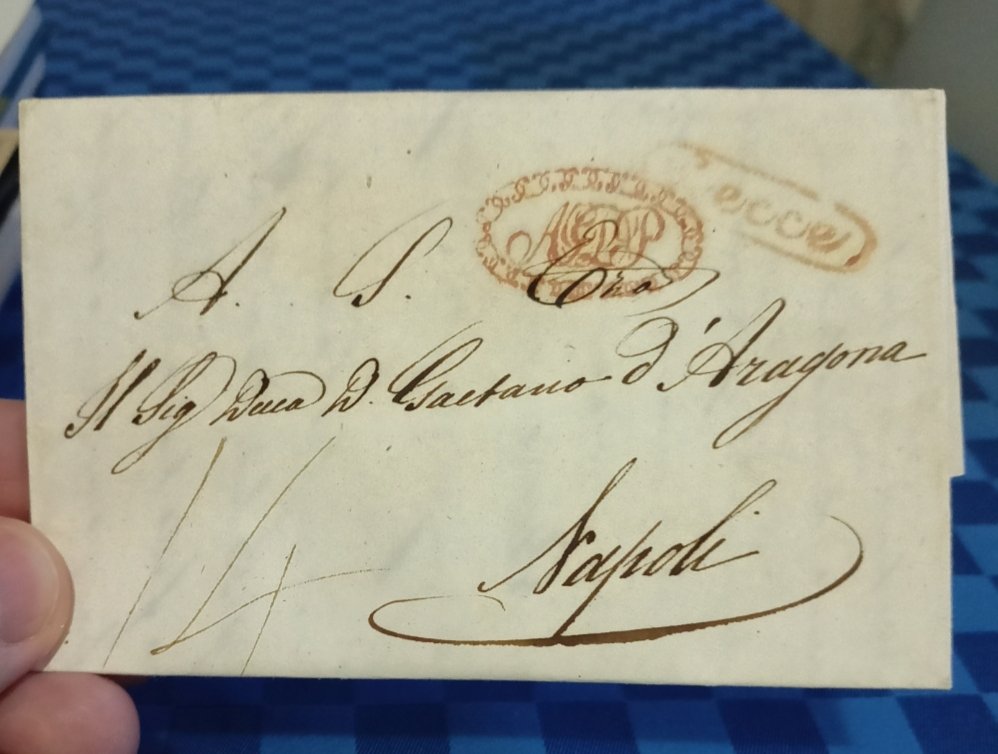 AGDP
Lecce
A. S. Ecc.za
Il Sig Duca D. Gaetano d'Aragona
14
Napoli